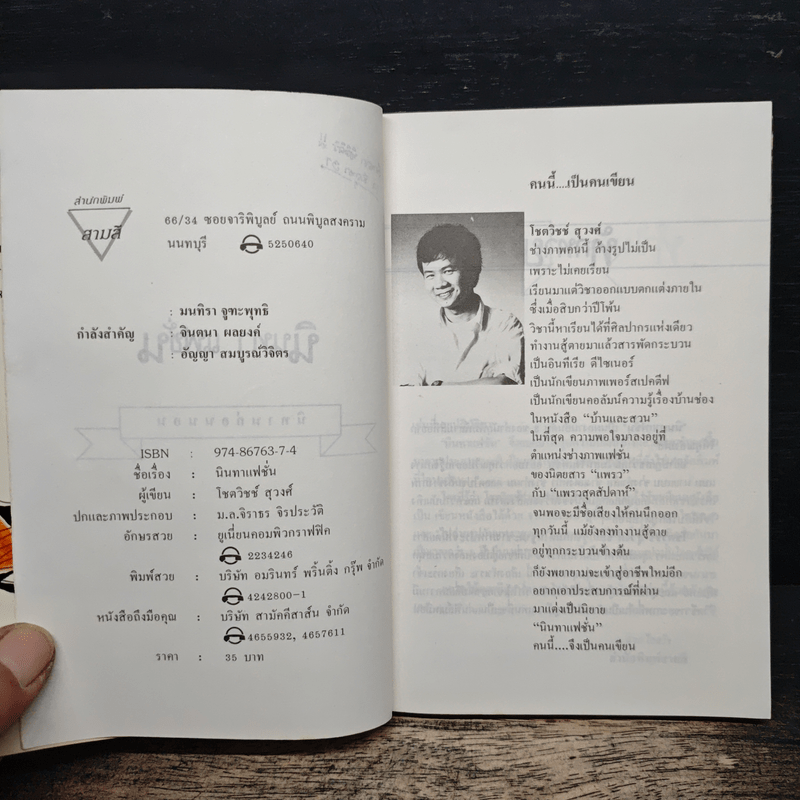 สำนักพิมพ์
สามสี
66/34 ซอยจาริพิบูลย์ ถนนพิบูลสงคราม
นนทบุรี 5250640
: มนทิรา จูฑะพุทธิ
กำลังสำคัญ : จินตนา ผลยงค์
: อัญญา สมบูรณ์วิจิตร
ISBN : 974-86763-7-4
ชื่อเรื่อง : นินทาแฟชั่น
ผู้เขียน : โชตวิชช์ สุวงศ์
ปกและภาพประกอบ : ม.ล.จิราธร จิรประวัติ
อักษรสวย : ยูเนี่ยนคอมพิวกราฟฟิค
2234246
พิมพ์สวย : บริษัท อมรินทร์ พริ้นติ้ง กรุ๊พ จำกัด
4242800-1
หนังสือถึงมือคุณ : บริษัท สามัคคีสาส์น จำกัด
4655932, 4657611
ราคา : 35 บาท
คนนี้....เป็นคนเขียน
โชตวิชช์ สุวงศ์
ช่างภาพคนนี้ ล้างรูปไม่เป็น
เพราะไม่เคยเรียน
เรียนมาแต่วิชาออกแบบตกแต่งภายใน
ซึ่งเมื่อสิบกว่าปีโพ้น
วิชานี้หาเรียนได้ที่ศิลปากรแห่งเดียว
ทำงานสู้ตายมาแล้วสารพัดกระบวน
เป็นอินทีเรีย ดีไซเนอร์
เป็นนักเขียนภาพเพอร์สเปคตีฟ
เป็นนักเขียนคอลัมน์ความรู้เรื่องบ้านช่อง
ในหนังสือ “บ้านและสวน”
ในที่สุด ความพอใจมาลงอยู่ที่
ตำแหน่งช่างภาพแฟชั่น
ของนิตยสาร “แพรว”
กับ “แพรวสุดสัปดาห์”
จนพอจะมีชื่อเสียงให้คนนึกออก
ทุกวันนี้ แม้ยังคงทำงานสู้ตาย
อยู่ทุกกระบวนข้างต้น
ก็ยังพยายามจะเข้าสู่อาชีพใหม่อีก
อยากเอาประสบการณ์ที่ผ่าน
มาแต่งเป็นนิยาย
“นินทาแฟชั่น”
คนนี้....จึงเป็นคนเขียน